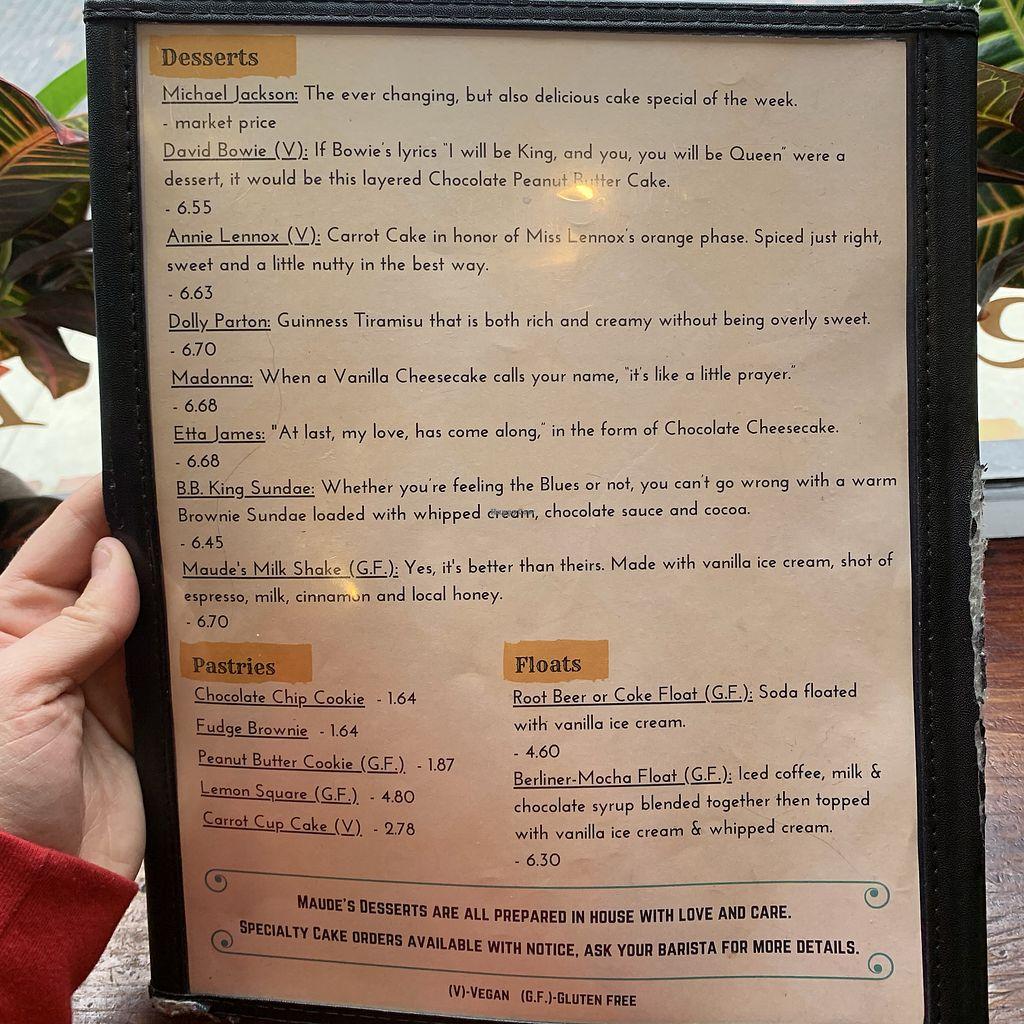 Desserts
Michael Jackson: The ever changing, but also delicious cake special of the week.
- market price
David Bowie (V): If Bowie's lyrics "I will be King, and you, you will be Queen" were a
dessert, it would be this layered Chocolate Peanut Butter Cake.
- 6.55
Annie Lennox (V): Carrot Cake in honor of Miss Lennox's orange phase. Spiced just right,
sweet and a little nutty in the best way.
- 6.63
Dolly Parton: Guinness Tiramisu that is both rich and creamy without being overly sweet.
- 6.70
Madonna: When a Vanilla Cheesecake calls your name, "it's like a little prayer."
- 6.68
Etta James: "At last, my love, has come along," in the form of Chocolate Cheesecake.
- 6.68
B.B. King Sundae: Whether you're feeling the Blues or not, you can't go wrong with a warm
Brownie Sundae loaded with whipped cream, chocolate sauce and cocoa.
- 6.45
Maude's Milk Shake (G.F.): Yes, it's better than theirs. Made with vanilla ice cream, shot of
espresso, milk, cinnamon and local honey.
- 6.70
Pastries
Chocolate Chip Cookie - 1.64
Fudge Brownie - 1.64
Peanut Butter Cookie (G.F.) - 1.87
Lemon Square (G.F.) - 4.80
Carrot Cup Cake (V) - 2.78
Floats
Root Beer or Coke Float (G.F.): Soda floated
with vanilla ice cream.
- 4.60
Berliner-Mocha Float (G.F.): Iced coffee, milk &
chocolate syrup blended together then topped
with vanilla ice cream & whipped cream.
- 6.30
MAUDE'S DESSERTS ARE ALL PREPARED IN HOUSE WITH LOVE AND CARE.
SPECIALTY CAKE ORDERS AVAILABLE WITH NOTICE, ASK YOUR BARISTA FOR MORE DETAILS.
(V)-VEGAN (G.F.)-GLUTEN FREE